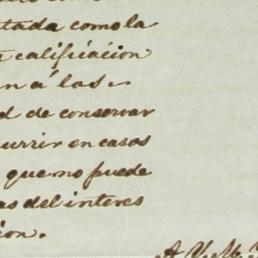 tada como la
calificácion
n á las
d de conservar
urrir en casos
que no puede
as del interes
ion.